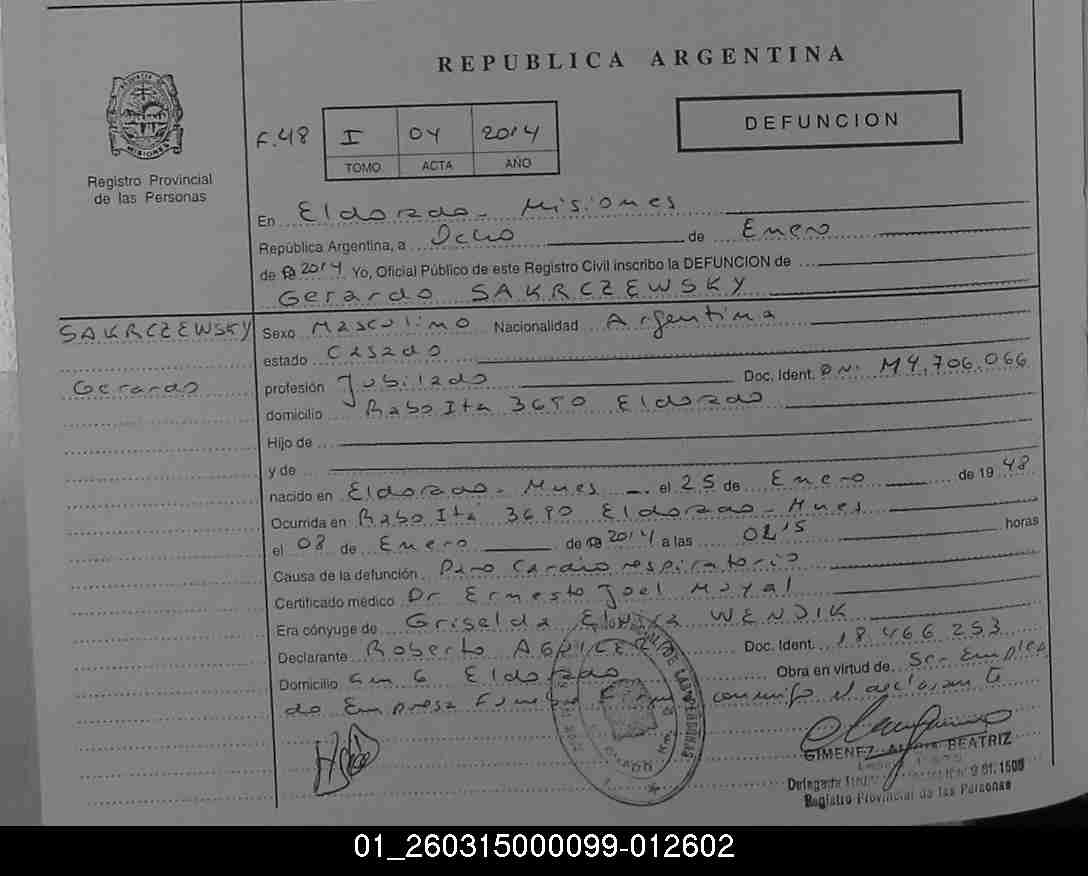 REPUBLICA ARGENTINA
F.48 I 04 2014
TOMO ACTA AÑO
DEFUNCION
MISIONES
Registro Provincial
de las Personas
En Eldorado - Misiones
República Argentina, a Ocho de Enero
de 2014 Yo, Oficial Público de este Registro Civil inscribo la DEFUNCION de
Gerardo SAKRCZEWSKY
SAKRCZEWSKY
Gerardo
Sexo Masculino Nacionalidad Argentina
estado Casado
profesión Jubilado Doc. Ident. DNI. M4.706.066
domicilio Rabo Itá 3690 Eldorado
Hijo de
y de
nacido en Eldorado - Mnes el 25 de Enero de 1948
Ocurrida en Rabo Itá 3690 Eldorado - Mnes
el 08 de Enero de 2014 a las 02:15 horas
Causa de la defunción Paro Cardiorespiratorio
Certificado médico Dr Ernesto Joel Moyal
Era cónyuge de Griselda WENDIK
Declarante Roberto Doc. Ident. 18.466.253
Domicilio Km 6 Eldorado Obra en virtud de Ser Emplea
do Empresa Funebre el declarante
GIMENEZ BEATRIZ
Registro Provincial de las Personas
01_260315000099-012602